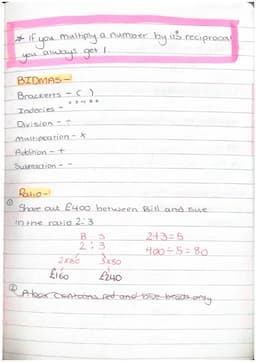 * If you multiply a number by its reciprocal
you always get 1.
BIDMAS -
Brackerts - ( )
Indecies -
Division - ÷
Multipication - x
Addition - +
Subtraction - -
Ratio -
① Share out £400 between Bill and Sue
in the ratio 2:3
B S
2 : 3
2+3=5
400÷5=80
2x80 3x80
£160 £240
② A box contains red and blue beads only